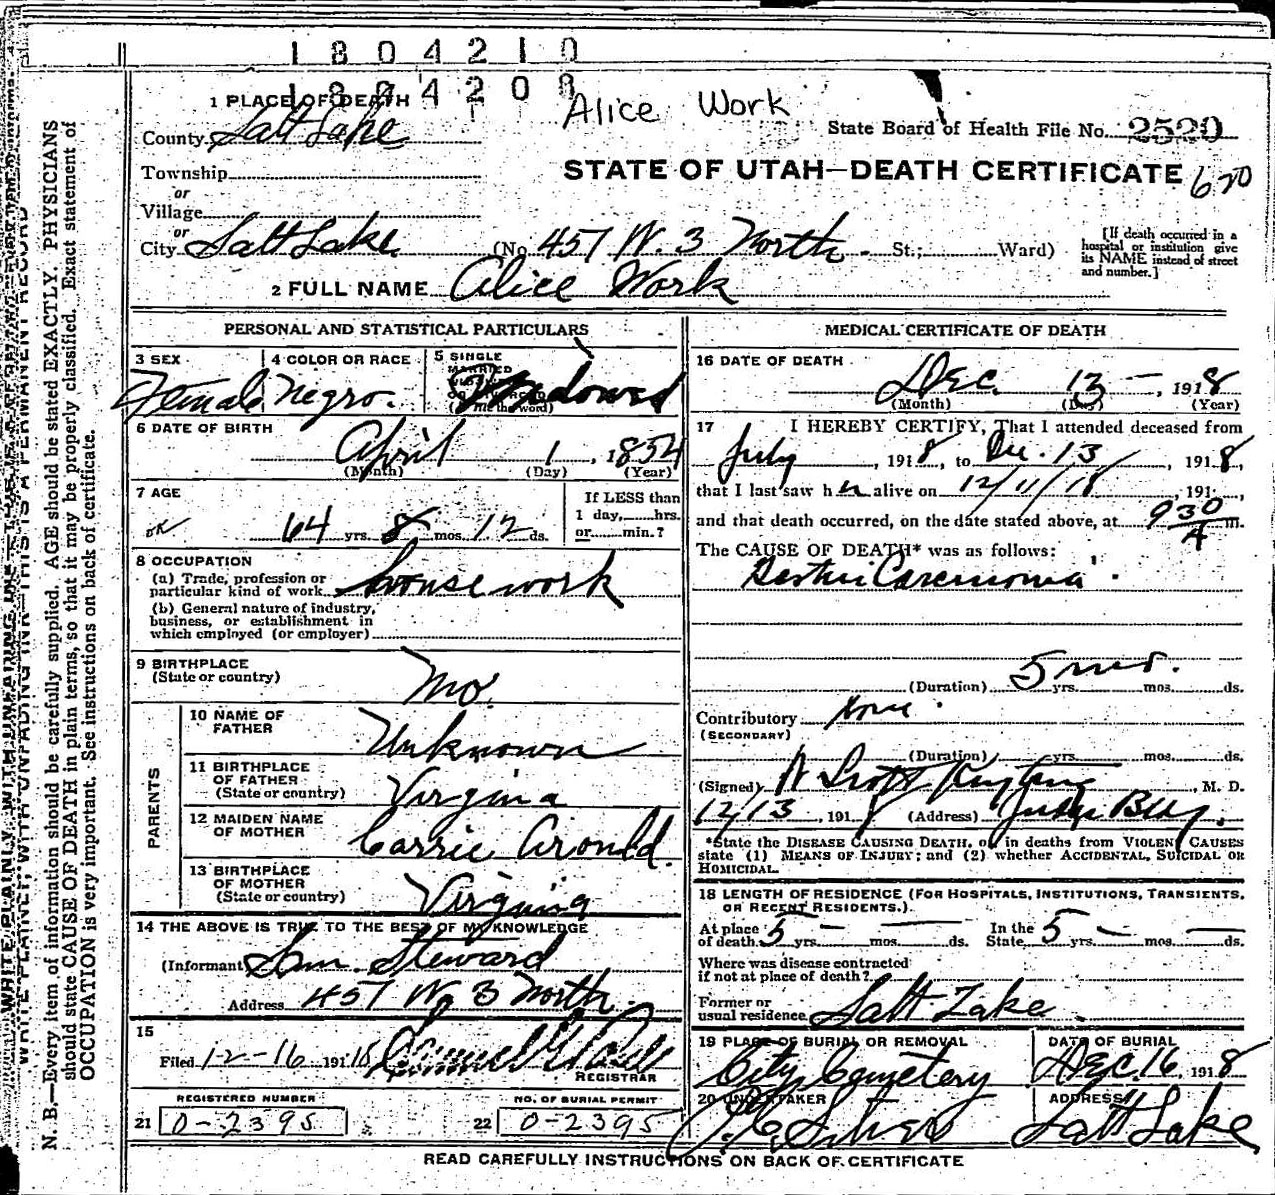 1804210
1804208
Alice Work
State Board of Health File No. 2520
STATE OF UTAH—DEATH CERTIFICATE 620
1 PLACE OF DEATH
County Salt Lake
Township
or
Village
or
City Salt Lake (No. 457 W. 3 North St.; Ward)
[If death occurred in a hospital or institution give its NAME instead of street and number.]
2 FULL NAME Alice Work
PERSONAL AND STATISTICAL PARTICULARS
3 SEX Female
4 COLOR OR RACE Negro.
5 SINGLE MARRIED Widowed
6 DATE OF BIRTH
April 1, 1854
(Month) (Day) (Year)
7 AGE
64 yrs. 8 mos. 12 ds.
If LESS than
1 day, hrs.
or min.?
8 OCCUPATION
(a) Trade, profession or
particular kind of work housework
(b) General nature of industry,
business, or establishment in
which employed (or employer)
9 BIRTHPLACE
(State or country) Mo.
PARENTS
10 NAME OF
FATHER Unknown
11 BIRTHPLACE
OF FATHER
(State or country) Virginia
12 MAIDEN NAME
OF MOTHER Carrie Arould.
13 BIRTHPLACE
OF MOTHER
(State or country) Virginia
14 THE ABOVE IS TRUE TO THE BEST OF MY KNOWLEDGE
(Informant Sam Steward
Address 457 W. 3 North
15
Filed 12-16 1918
REGISTRAR
REGISTERED NUMBER
21 0-2395
NO. OF BURIAL PERMIT
22 0-2395
MEDICAL CERTIFICATE OF DEATH
16 DATE OF DEATH
Dec. 13, 1918
(Month) (Day) (Year)
17 I HEREBY CERTIFY, That I attended deceased from
July, 1918, to Dec. 13, 1918,
that I last saw her alive on 12/11/18, 191 ,
and that death occurred, on the date stated above, at 930 A m.
The CAUSE OF DEATH* was as follows:
(Duration) 5 mos. yrs. mos. ds.
Contributory None
(SECONDARY)
(Duration) yrs. mos. ds.
(Signed) , M. D.
12/13, 1918 (Address) Judge Bldg.
*State the DISEASE CAUSING DEATH, or in deaths from VIOLENT CAUSES
state (1) MEANS OF INJURY; and (2) whether ACCIDENTAL, SUICIDAL OR
HOMICIDAL.
18 LENGTH OF RESIDENCE (FOR HOSPITALS, INSTITUTIONS, TRANSIENTS,
OR RECENT RESIDENTS.)
At place
of death 5 yrs. — mos. — ds. In the
State 5 yrs. — mos. — ds.
Where was disease contracted
if not at place of death?
Former or
usual residence Salt Lake
19 PLACE OF BURIAL OR REMOVAL
City Cemetery
DATE OF BURIAL
Dec. 16, 1918
20 UNDERTAKER
ADDRESS
Salt Lake
READ CAREFULLY INSTRUCTIONS ON BACK OF CERTIFICATE
WRITE PLAINLY, WITH UNFADING INK—THIS IS A PERMANENT RECORD
N. B.—Every item of information should be carefully supplied. AGE should be stated EXACTLY. PHYSICIANS
should state CAUSE OF DEATH in plain terms, so that it may be properly classified. Exact statement of
OCCUPATION is very important. See instructions on back of certificate.